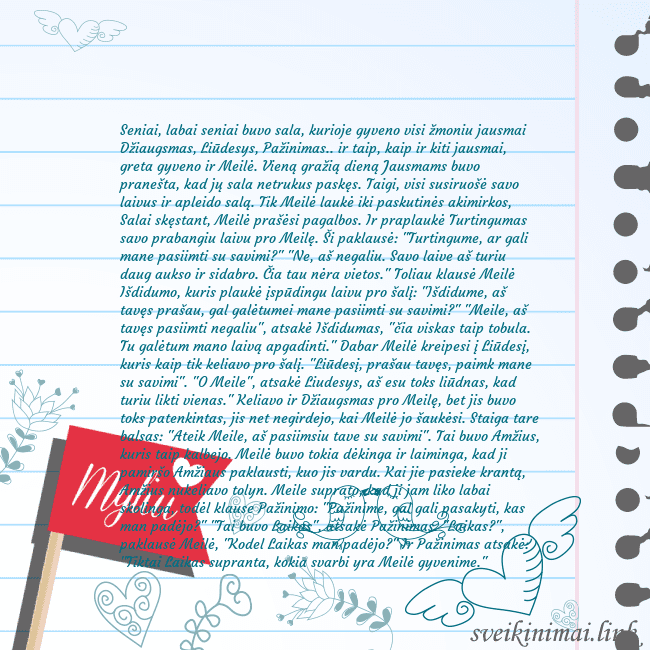 Seniai, labai seniai buvo sala, kurioje gyveno visi žmoniu jausmai
Džiaugsmas, Liūdesys, Pažinimas.. ir taip, kaip ir kiti jausmai,
greta gyveno ir Meilė. Vieną gražią dieną Jausmams buvo
pranešta, kad jų sala netrukus paskęs. Taigi, visi susiruošė savo
laivus ir apleido salą. Tik Meilė laukė iki paskutinės akimirkos,
Salai skęstant, Meilė prašėsi pagalbos. Ir praplaukė Turtingumas
savo prabangiu laivu pro Meilę. Ši paklausė: "Turtingume, ar gali
mane pasiimti su savimi?" "Ne, aš negaliu. Savo laive aš turiu
daug aukso ir sidabro. Čia tau nėra vietos." Toliau klausė Meilė
Išdidumo, kuris plaukė įspūdingu laivu pro šalį: "Išdidume, aš
tavęs prašau, gal galėtumei mane pasiimti su savimi?" "Meile, aš
tavęs pasiimti negaliu", atsakė Išdidumas, "čia viskas taip tobula.
Tu galėtum mano laivą apgadinti." Dabar Meilė kreipesi į Liūdesį,
kuris kaip tik keliavo pro šalį. "Liūdesį, prašau tavęs, paimk mane
su savimi". "O Meile", atsakė Liudesys, aš esu toks liūdnas, kad
turiu likti vienas." Keliavo ir Džiaugsmas pro Meilę, bet jis buvo
toks patenkintas, jis net negirdejo, kai Meilė jo šaukėsi. Staiga tare
balsas: "Ateik Meile, aš pasiimsiu tave su savimi". Tai buvo Amžius,
kuris taip kalbejo. Meilė buvo tokia dėkinga ir laiminga, kad ji
pamiršo Amžiaus paklausti, kuo jis vardu. Kai jie pasieke krantą,
Amžius nukeliavo tolyn. Meile suprato, kad ji jam liko labai
skolinga, todėl klausė Pažinimo: "Pažinime, gal gali pasakyti, kas
man padėjo?" "Tai buvo Laikas", atsakė Pažinimas. "Laikas?",
paklausė Meilė, "Kodel Laikas man padėjo?" Ir Pažinimas atsakė:
"Tiktai Laikas supranta, kokia svarbi yra Meilė gyvenime."
Myliu
sveikinimai.link